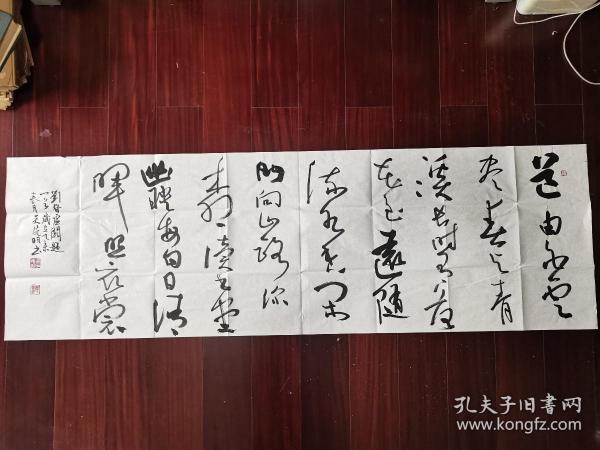 道由白云
尽春与青
溪长时有落
花至遠随
流水香閑
门向山路深
柳读书堂
幽映每白日清
暉照衣裳
劉昚虚闕題
孔夫子旧书网
www.kongfz.com